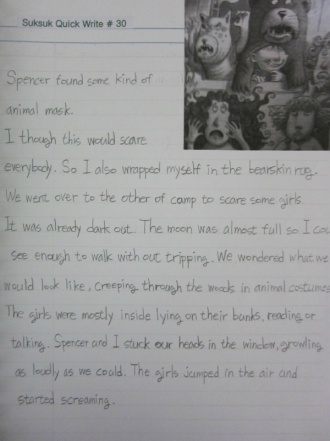 Suksuk Quick Write # 30
Spencer found some kind of
animal mask.
I though this would scare
everybody. So I also wrapped myself in the bearskin rug.
We went over to the other of camp to scare some girls.
It was already dark out. The moon was almost full so I cou
see enough to walk with out tripping. We wondered what we
would look like, creeping through the woods in animal costumes
The girls were mostly inside lying on their bunks, reading or
talking. Spencer and I stuck our heads in the window, growling
as loudly as we could. The girls jumped in the air and
started screaming.